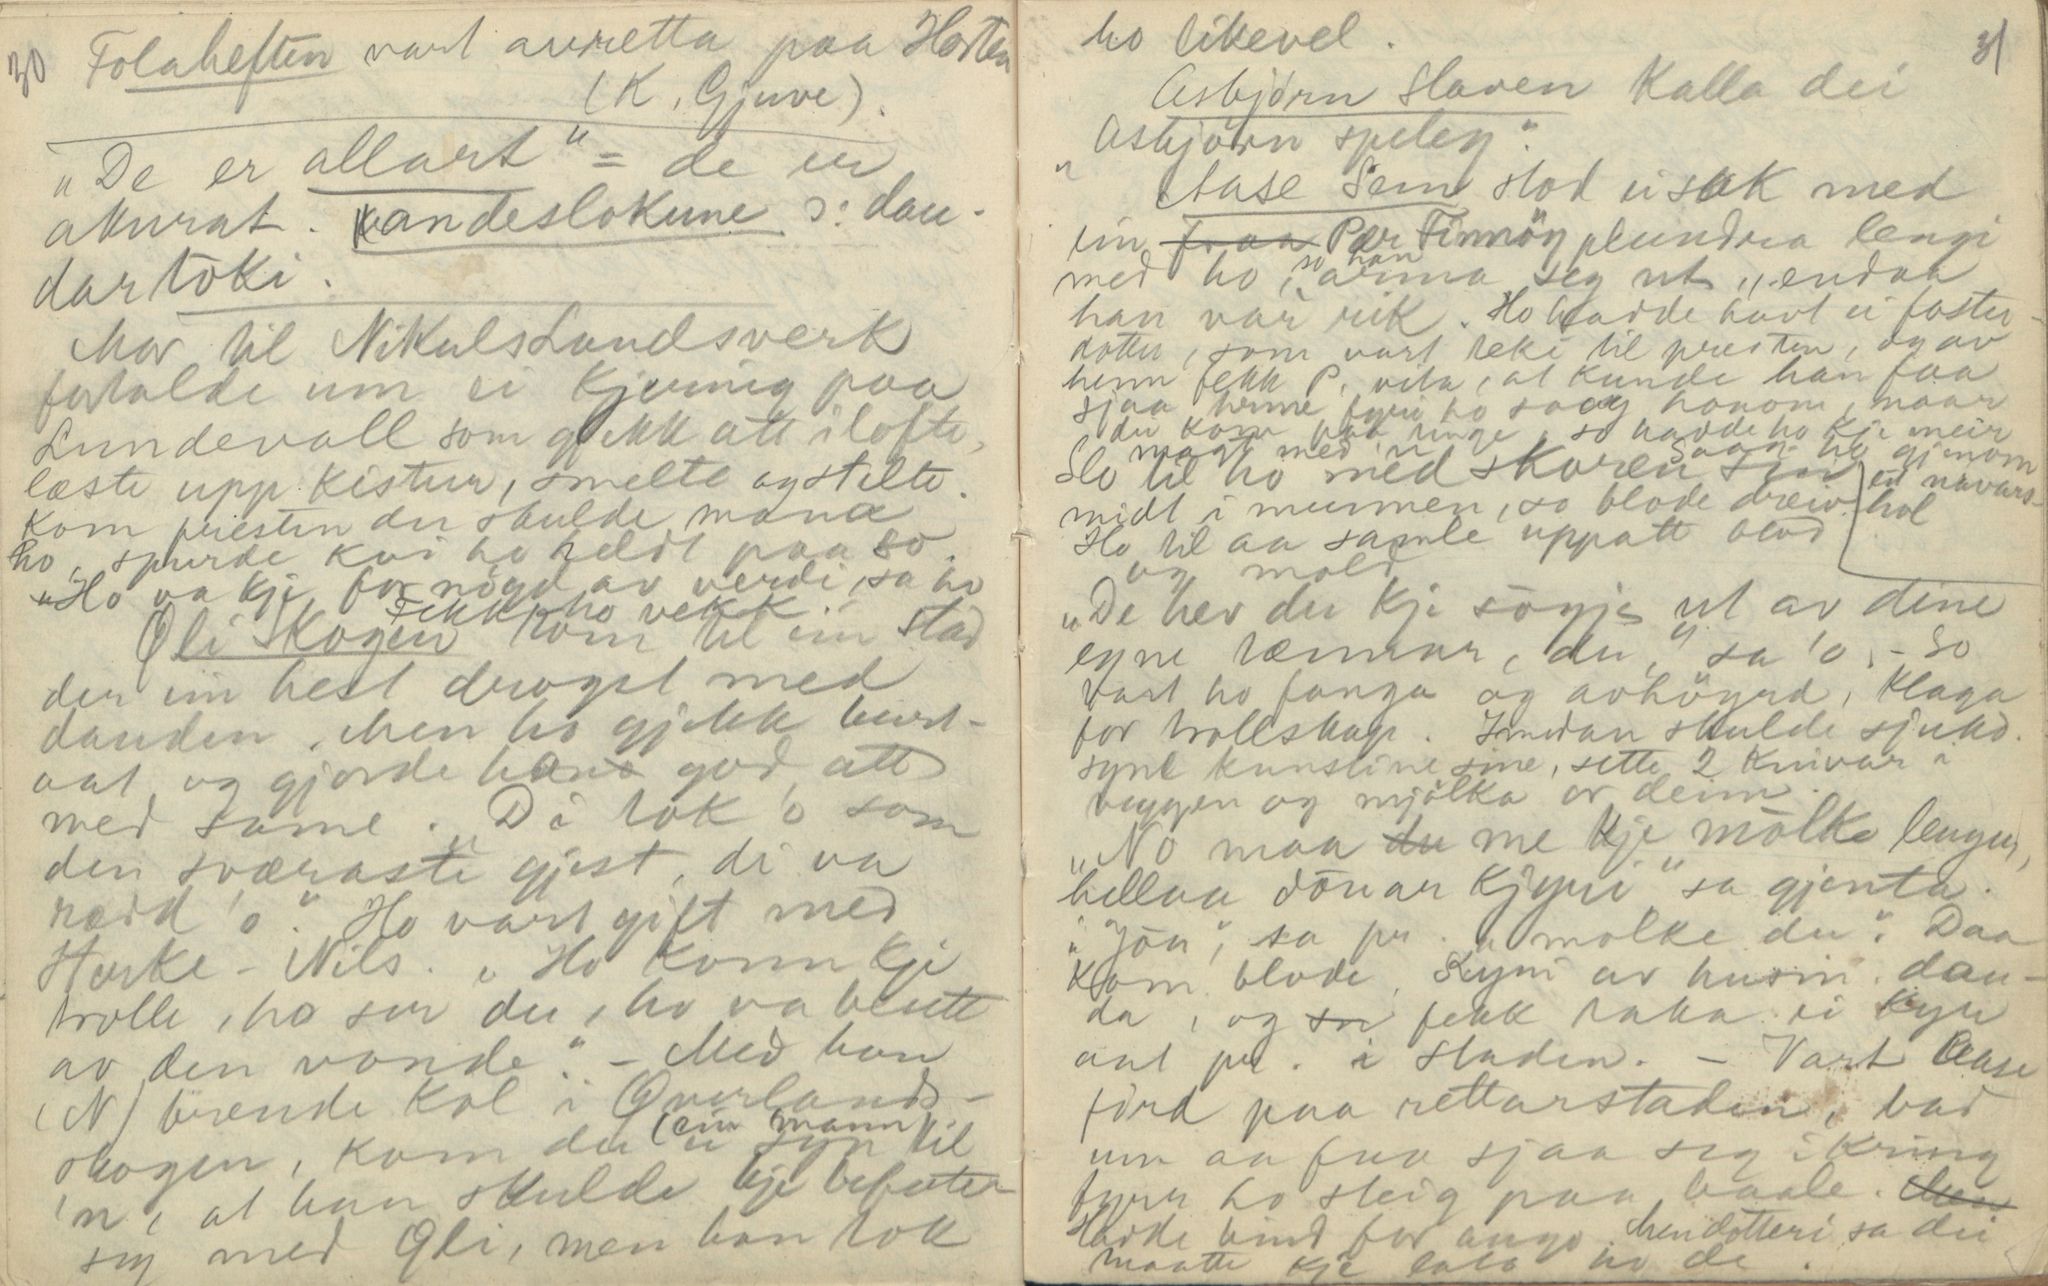 30 Folaheften vart avretta paa Hosten
(K. Gjuve).
"De er allart" = de er
akurat. Kandeslokune ɔ: dau-
dartoki.
Mor til Nikuls Lundsverk
fortalde um ei kjering paa
Lundevall som gjekk att i lofte,
læste upp kistur, smelte og stelte.
Kom presten der skulde mana
ho, spurde kvi ho heldt paa so.
"Ho va kje fornögd av verdi, sa ho
Fekk ho vekk.
Oli Skogen kom til ein stad
der ein hest drogst med
dauden. Men ho gjekk burt-
aat og gjorde hono god att
med same. "Di tok 'o som
den sværaste gjest, di va
rædd 'o." Ho vart gift med
Sterke-Nils. "Ho kunn kje
trolle, ho ser du, ho va beett
av den vonde." – Med han
(N) brende kol i Overlands-
skogen, kom der ei syn til
(ein mann)
'n, at han skulde kje befatte
seg med Oli, men han tok
ho likevel.
31
Asbjörn Slaven kalla dei
"Asbjörn speleg".
Aase Sem stod i sak med
ein fraa Per Finnöy plundra lengi
med ho, so han arma seg ut, endaa
han var rik. Ho hadde havt ei foster-
dotter, som vart teki til presten, og av
henn fekk P. vita, at kunde han faa
sjaa henne fyri ho saag honom, naar
der kom paa tinge, so hadde ho kje meir
magt med 'n. Saag ho gjenom
ei navars-
hol
Slo til ho med skoren sin
midt i munnen, so blode dreiv.
Ho til aa samle uppatt blod
og mold
"De hev du kje sögje ut av dine
egne tænnar, du," sa 'o. – So
vart ho fanga og avhöyrd, klaga
for trollskap. Imedan skulde sjukd.
syne kunstine sine, sette 2 knivar i
veggen og mjölka or deim.
"No maa du me kje mölke lenger,
hellaa dönar kjyri" sa gjenta.
"Jöu", sa pr. "mölke du". Daa
kom blode. Kyni av husin dau-
da, og so fekk taka ei kyr
aat pr. i staden. – Vart Aase
förd paa rettarstaden, bad
um aa faa sjaa seg ikring
fyrr ho steig paa baale. Men
Hadde bind for augo. Men dotteri sa dei
maatte kje lata ho de.